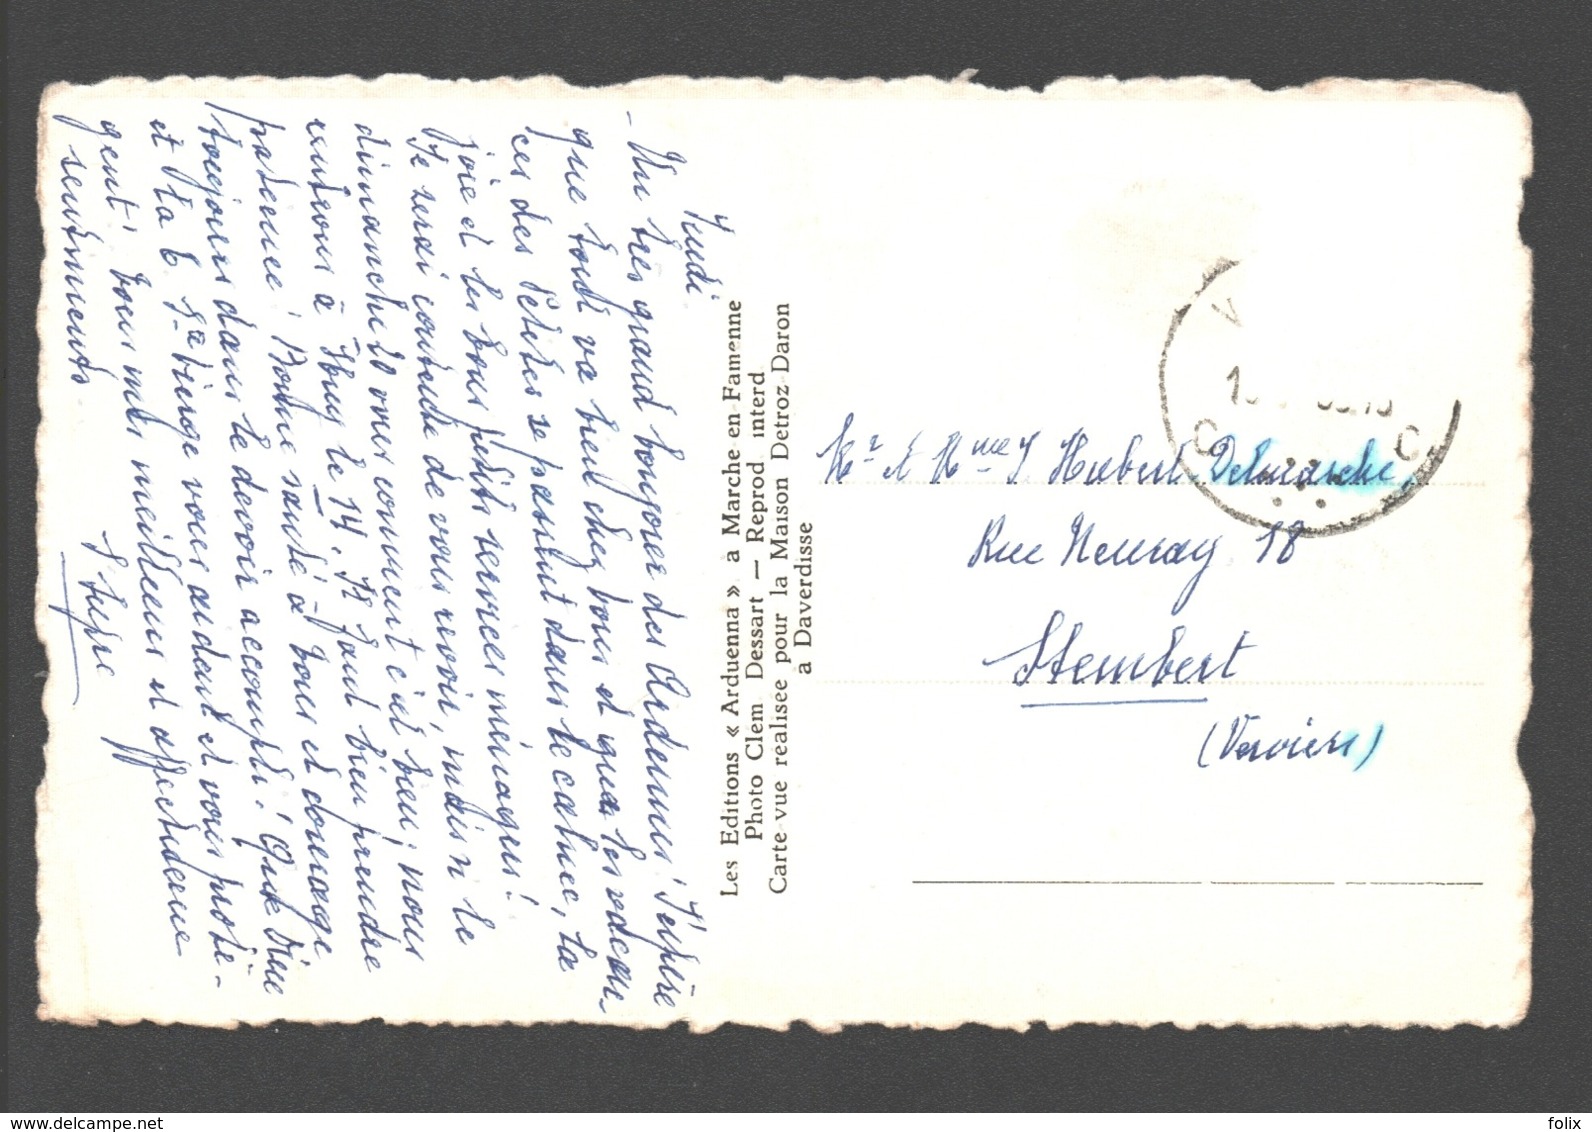 Jeudi
- Un très grand bonjour des Ardennes! J'espère
que tout va bien chez vous et que les vacan-
ces des Petites se passent dans le calme, la
joie et les bons petits services ménagers!
Je serai contente de vous revoir, mais le
dimanche vous convient c'est bien; nous
rentrons à le 14. Il faut bien prendre
patience! Bonne santé à vous et courage
toujours dans le devoir accompli! Que Dieu
et la Ste Vierge vous aident et vous protè-
gent! Tous mes meilleurs et affectueux
sentiments.
Les Editions « Arduenna » a Marche en Famenne
Photo Clem Dessart — Reprod interd
Carte-vue realisee pour la Maison Detroz-Daron
a Daverdisse
V
C C
Mr et Mme J. Hubert Delmarche
Rue Neuray 18
Stembert
(Verviers)
www.delcampe.net
folix